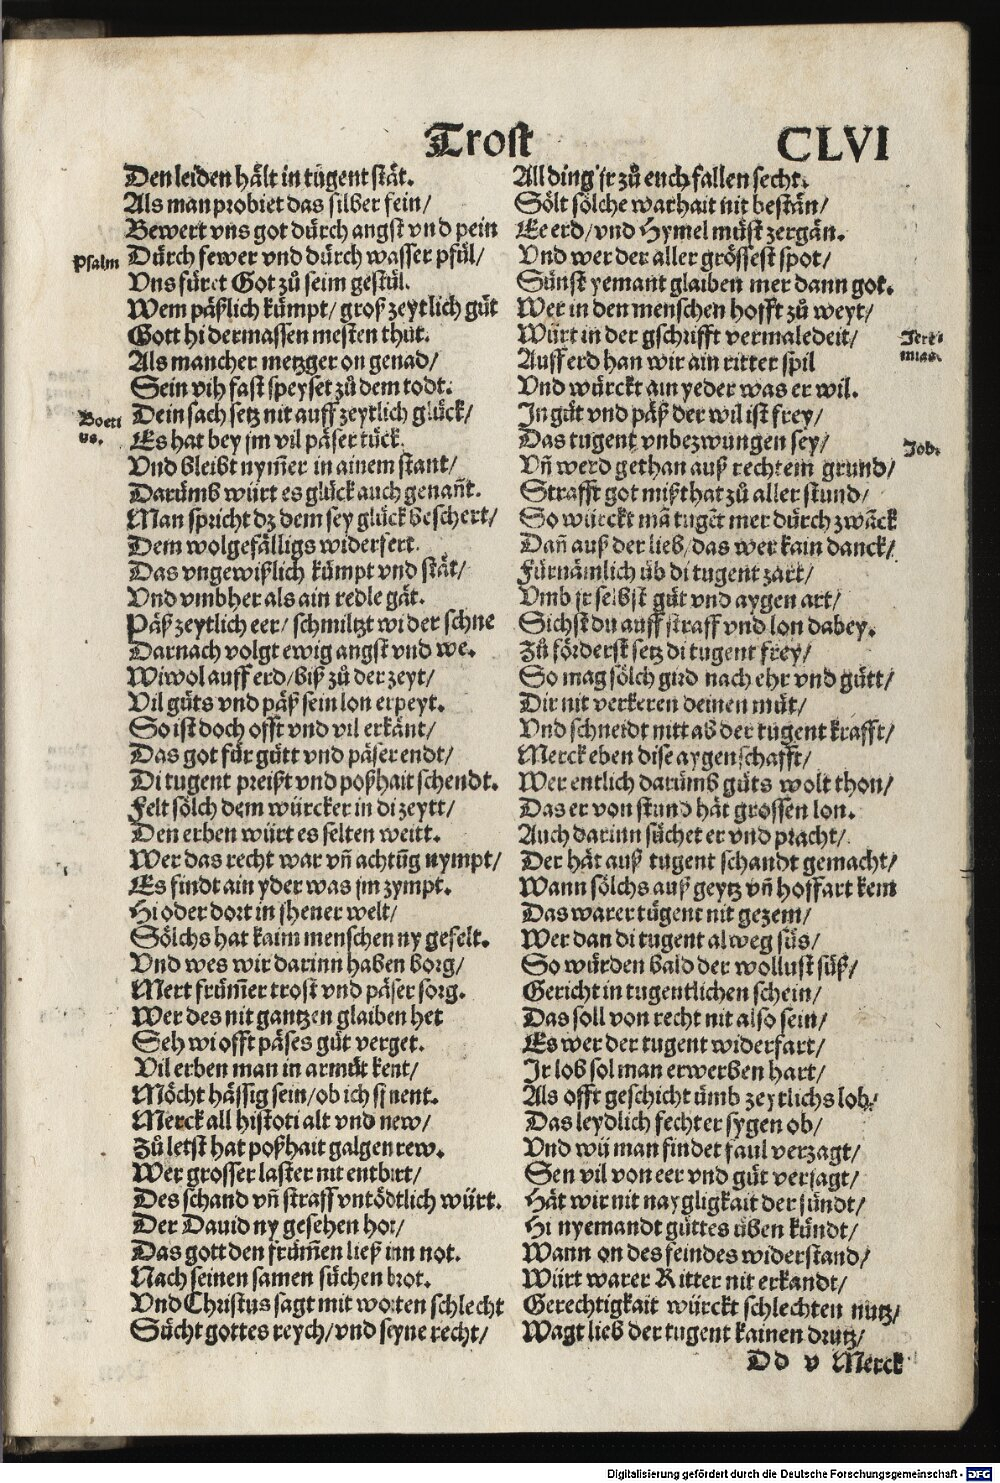 Trost
CLVI
Den leiden hält in tugent stät.
Als man probiet das silber fein/
Bewert vns got dürch angst vnd pein
Psalm
Dürch fewer vnd dürch wasser pfül/
Vns füret Got zů seim gestül.
Wem päßlich kümpt/ groß zeytlich güt
Gott hi dermassen mesten thüt.
Als mancher metzger on genad/
Sein vih fast speyset zů dem todt.
Boeti
us.
Dein sach setz nit auff zeytlich glück/
Es hat bey jm vil päser tück.
Vnd bleibt nym̃er in ainem stant/
Darümb würt es glück auch genañt.
Man spricht dz dem sey glück beschert/
Dem wolgefälligs widerfert.
Das vngewißlich kümpt vnd stät/
Vnd vmbher als ain redle gät.
Päß zeytlich eer/ schmiltzt wi der schne
Darnach volgt ewig angst vnd we.
Wiwol auff erd/ biß zů der zeyt/
Vil güts vnd päß sein lon erpeyt.
So ist doch offt vnd vil erkänt/
Das got für gütt vnd päser endt/
Di tugent preißt vnd poßhait schendt.
Felt sölch dem würcker in di zeytt/
Den erben würt es selten weitt.
Wer das recht war vñ achtũg nympt/
Es findt ain yder was jm zympt.
Hi oder dort in jhener welt/
Sölchs hat kaim menschen ny gefelt.
Vnd wes wir darinn haben borg/
Mert früm̃er trost vnd päser sorg.
Wer des nit gantzen glaiben het
Seh wi offt päses güt verget.
Vil erben man in armüt kent/
Möcht hässig sein/ ob ich si nent.
Merck all histori alt vnd new/
Zů letst hat poßhait galgen rew.
Wer grosser laster nit entbirt/
Des schand vñ straff vntödtlich würt.
Der Dauid ny gesehen hot/
Das gott den früm̃en ließ inn not.
Nach seinen samen süchen brot.
Vnd Christus sagt mit worten schlecht
Sücht gottes reych/ vnd seyne recht/
All ding jr zů euch fallen secht.
Sölt sölche warhait nit bestän/
Ee erd/ vnd Hymel müst zergän.
Vnd wer der aller grössest spot/
Sünst yemant glaiben mer dann got.
Wer in den menschen hofft zů weyt/
Würt in der gschrifft vermaledeit/
Jere-
mias.
Auff erd han wir ain ritter spil
Vnd würckt ain yeder was er wil.
In güt vnd päß der wil ist frey/
Das tugent vnbezwungen sey/
Job.
Vñ werd gethan auß rechtem grund/
Strafft got mißthat zů aller stund/
So würckt mã tugẽt mer dürch zwãck
Dañ auß der lieb/ das wer kain danck/
Fürnämlich üb di tugent zart/
Vmb jr selbst güt vnd aygen art/
Sichst du auff straff vnd lon dabey.
Zů förderst setz di tugent frey/
So mag sölch gird nach ehr vnd gütt/
Dir nit verkeren deinen müt/
Vnd schneidt nitt ab der tugent krafft/
Merck eben dise aygenschafft/
Wer entlich darümb güts wolt thon/
Das er von stund hät grossen lon.
Auch darinn süchet er vnd pracht/
Der hät auß tugent schandt gemacht/
Wann sölchs auß geytz vñ hoffart kem
Das warer tügent nit gezem/
Wer dan di tugent alweg süs/
So würden bald der wollust süß/
Gericht in tugentlichen schein/
Das soll von recht nit also sein/
Es wer der tugent widerfart/
Ir lob sol man erwerben hart/
Als offt geschicht ümb zeytlichs lob/
Das leydlich fechter sygen ob/
Vnd wü man findet faul verzagt/
Sen vil von eer vnd güt verjagt/
Hät wir nit naygligkait der sündt/
Hi nyemandt güttes üben kündt/
Wann on des feindes widerstand/
Würt warer Ritter nit erkandt/
Gerechtigkait würckt schlechten nutz/
Wagt lieb der tugent kainen drutz/
Dd v Merck
Digitalisierung gefördert durch die Deutsche Forschungsgemeinschaft - DFG